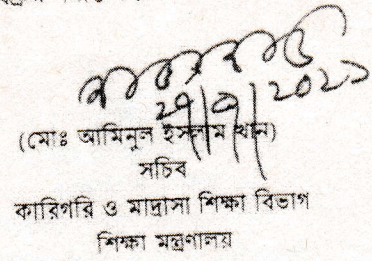 ২৭/৭/২০২১
(মোঃ আমিনুল ইসলাম খান)
সচিব
কারিগরি ও মাদ্রাসা শিক্ষা বিভাগ
শিক্ষা মন্ত্রণালয়